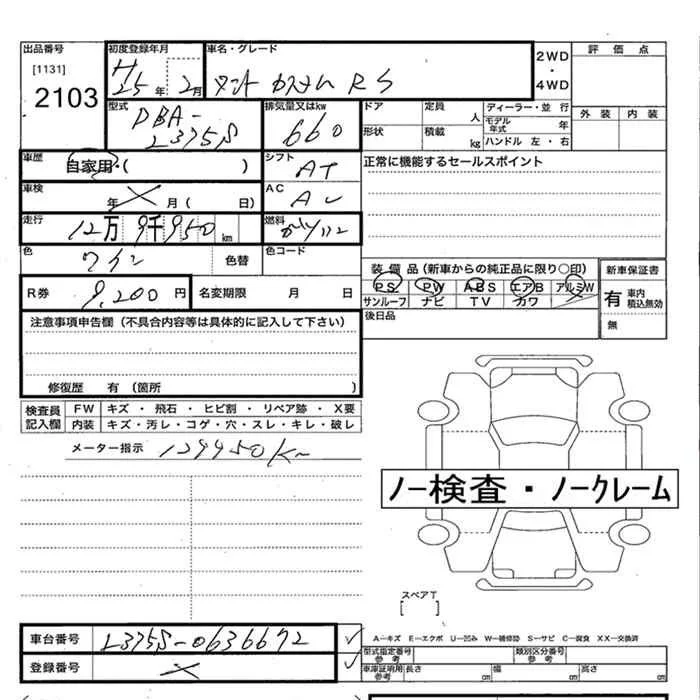 出品番号 初度登録年月 車名・グレード 2WD・4WD 評価点
[1131] 2103 H25年2月 タント カスタム RS
型式 DBA-L375S 排気量又はkw 660 ドア 定員 人 ディーラー・並行 外装 内装
形状 積載 kg モデル年式 年 ハンドル 左・右
車歴 自家用・( ) シフト AT 正常に機能するセールスポイント
車検 年 ✕ 月( 日) AC
走行 12万9千950km 燃料
色 ワイン 色替 色コード
装備品(新車からの純正品に限り○印) 新車保証書
PS PW ABS エアB アルミW 有 車内積込無効
サンルーフ ナビ TV カワ 無
R券 9,200円 名変期限 月 日 後日品
注意事項申告欄(不具合内容等は具体的に記入して下さい)
修復歴 有(箇所 )
検査員記入欄 FW キズ・飛石・ヒビ割・リペア跡・X要
内装 キズ・汚レ・コゲ・穴・スレ・キレ・破レ
メーター指示 129950Km
ノー検査・ノークレーム
スペアT
[ ]
車台番号 L375S-0636672 ✓
A-キズ E-エクボ U-凹み W-補修跡 S-サビ C-腐食 XX-交換済
登録番号 ✕ ✓
型式指定番号 参考 類別区分番号 参考
車庫証明用 参考 長さ cm 幅 cm 高さ cm